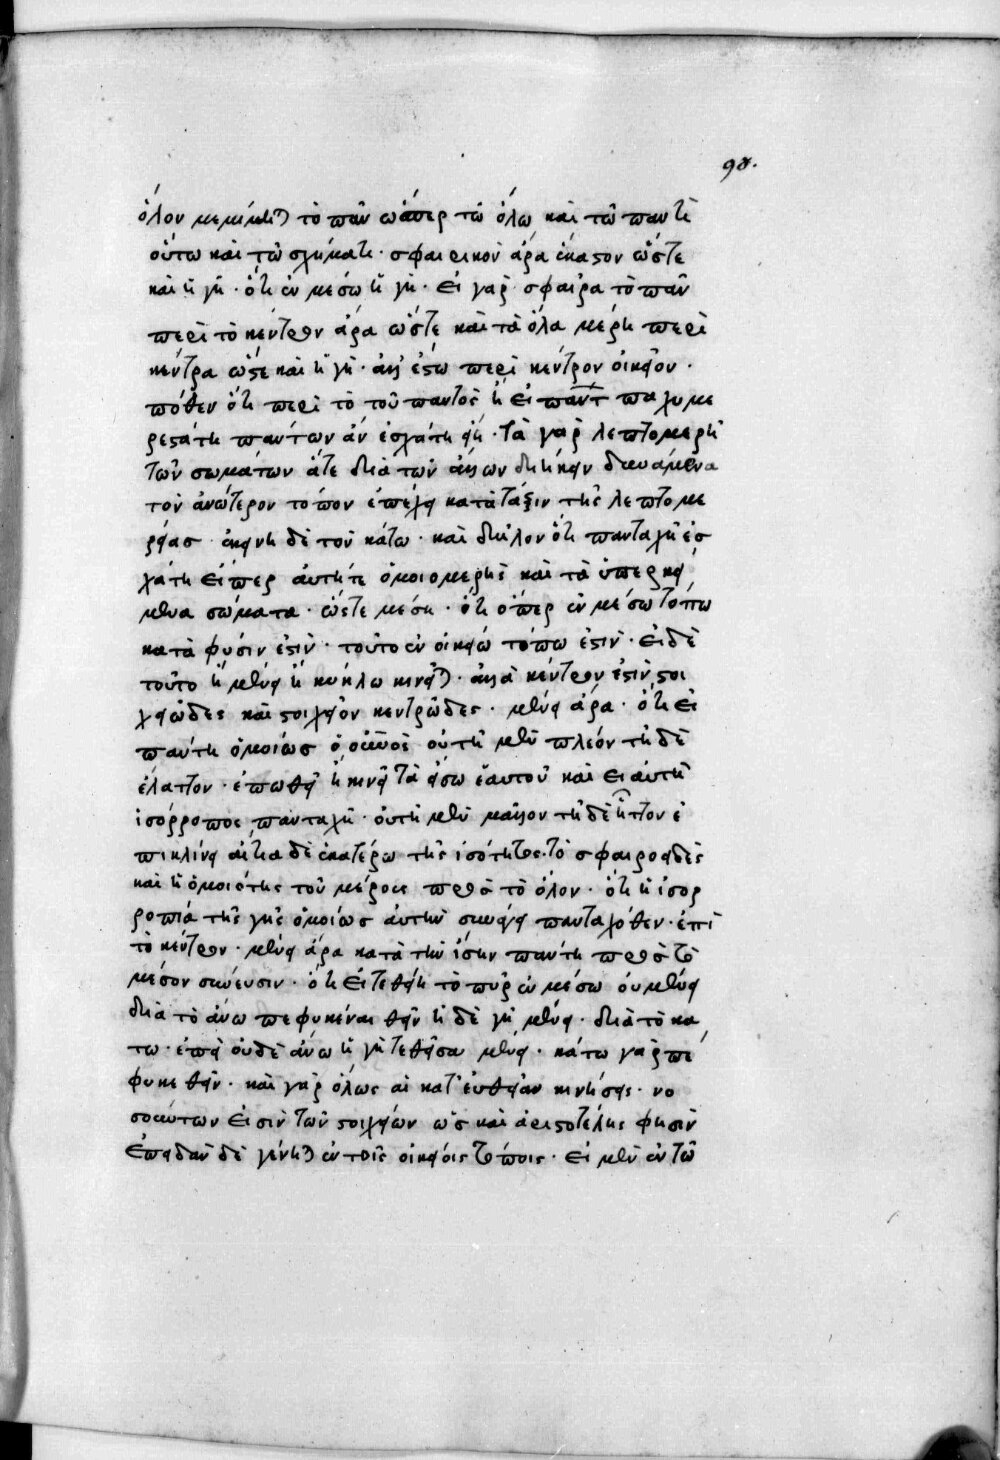 98.
ὅλον μεμίμηται τὸ πᾶν ὥσπερ τῶ ὅλω καὶ τῶ παντὶ
οὕτω καὶ τῶ σχήματι· σφαιρικὸν ἄρα ἕκαστον ὥστε
καὶ ἡ γῆ· ὅτι ἐν μέσω ἡ γῆ· εἰ γὰρ σφαῖρα τὸ πᾶν
περὶ τὸ κέντρον ἄρα ὥστε καὶ τὰ ὅλα μέρη περὶ
κέντρα ὥστε καὶ ἡ γῆ· ἀλλ' ἔστω περὶ κέντρον οἰκεῖον·
πόθεν ὅτι περὶ τὸ τοῦ παντὸς ἢ εἰ παντ παχυμε
ρεστάτη πάντων ἂν ἐσχάτη εἴη· τὰ γὰρ λεπτομερῆ
τῶν σωμάτων ἅτε διὰ τῶν ἄλλων διήκειν δυνάμενα
τὸν ἀνώτερον τόπον ἐπέχει κατὰ τάξιν τῆς λεπτομε
ρείας ἐκείνη δὲ τὸν κάτω· καὶ δῆλον ὅτι πανταχῆ ἐσ
χάτη εἴπερ αὐτή τε ὁμοιομερὴς καὶ τὰ ὑπερκεί
μενα σώματα· ὥστε μέση· ὅτι ὅπερ ἐν μέσω τόπω
κατὰ φύσιν ἐστὶν· τοῦτο ἐν οἰκείω τόπω ἐστὶν· εἰ δὲ
τοῦτο ἢ μένει ἢ κύκλω κινεῖται· ἀλλὰ κέντρον ἐστὶ στοι
χειῶδες καὶ στοιχεῖον κεντρῶδες· μένει ἄρα· ὅτι εἰ
πάντη ὁμοίως ὁ οὐρανὸς οὐ τῆ μὲν πλέον τῆ δὲ
ἔλαττον· ἐπωθεῖ ἢ κινεῖ τὰ εἴσω ἑαυτοῦ καὶ εἰ αὐτὴ
ἰσόρροπος πανταχῆ· οὐ τῆ μὲν μᾶλλον τῆ δὲ ἧττον ἐ
πικλίνει αἰτία δὲ ἑκατέρω τῆς ἰσότητος τὸ σφαιροειδὲς
καὶ ἡ ὁμοιότης τοῦ μέρους πρὸς τὸ ὅλον· ὅτι ἡ ἰσορ
ροπία τῆς γῆς ὁμοίως αὐτὴν συνάγει πανταχόθεν· ἐπὶ
τὸ κέντρον· μένει ἄρα κατὰ τὴν ἴσην πάντη πρὸς τὸ
μέσον σύνευσιν· ὅτι εἰ τεθείη τὸ πῦρ ἐν μέσω οὐ μένει
διὰ τὸ ἄνω πεφυκέναι θεῖν ἡ δὲ γῆ μένει· διὰ τὸ κά
τω· ἐπεὶ οὐδὲ ἄνω ἡ γῆ τεθεῖσα μένει· κάτω γὰρ πέ
φυκε θεῖν· καὶ γὰρ ὅλως αἱ κατ' εὐθεῖαν κινήσεις· νο
σούντων εἰσὶν τῶν στοιχείων ὡς καὶ ἀριστοτέλης φησὶν
ἐπειδὰν δὲ γένηται ἐν τοῖς οἰκείοις τόποις· εἰ μὲν ἐν τῶ